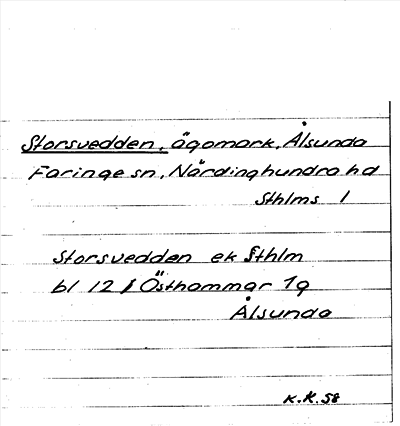 Storsvedden, ägomark, Ålsunda
Faringe sn, Närdinghundra hd
Sthlms l
Storsvedden ek Sthlm
bl 12 Östhammar 1g
Ålsunda
K.K.58